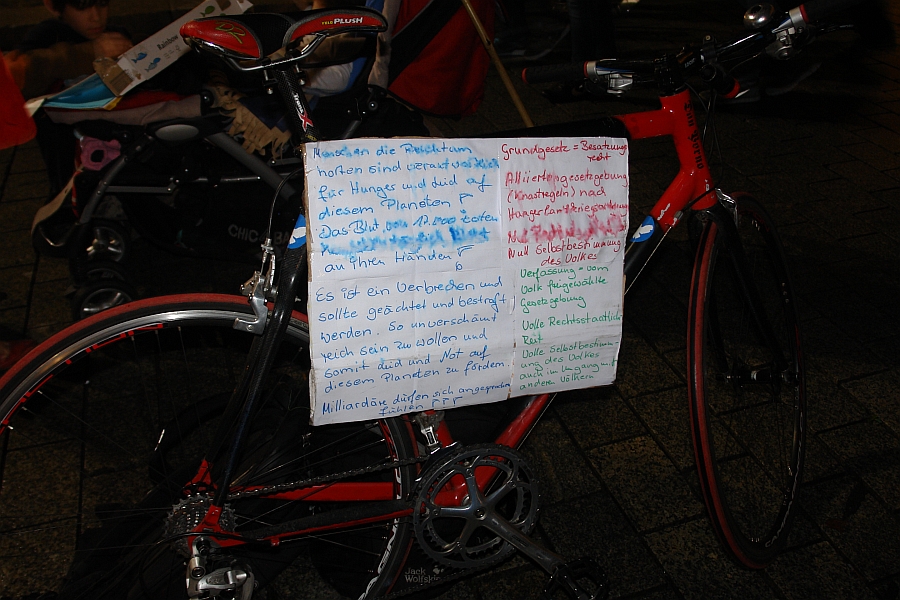 PLUSH
Rainbow
CHIC
Menschen die Reichtum
horten sind verantwortlich
für Hunger und Leid auf
diesem Planeten
Das Blut von 12.000
an ihren Händen
Es ist ein Verbrechen und
sollte geächtet und bestraft
werden. So unverschämt
reich sein zu wollen und
somit Leid und Not auf
diesem Planeten zu fördern
Milliardäre dürfen sich angesprochen
fühlen
Grundgesetz = Besatzungs
recht
Alliiertengesetzgebung
(Knastregeln) nach
Null Selbstbestimmung
des Volkes
Verfassung = vom
Volk frei gewählte
Gesetzgebung
Volle Rechtsstaatlich
Keit
Volle Selbstbestimm-
ung des Volkes
auch im Umgang mit
anderen Völkern
Jack
Wolfskin